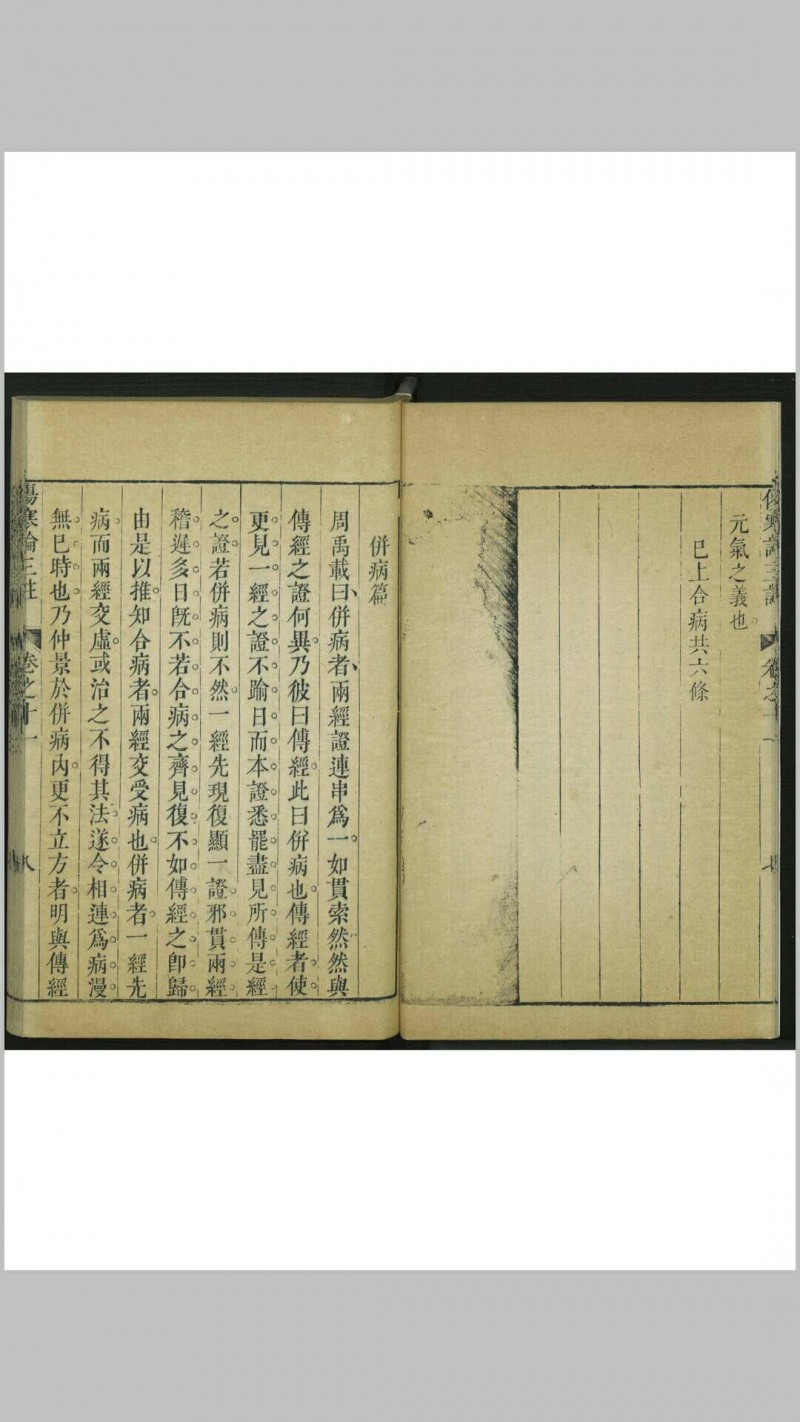 元氣之義也
已上合病共六條
併病篇
周禹載曰併病者兩經證連串爲一如貫索然然與
傳經之證何異乃彼曰傳經此曰併病也傳經者使
更見一經之證不踰日而本證悉罷盡見所傳是經
之證若併病則不然一經先現復顯一證邪貫兩經
稽遲多日旣不若合病之齊見復不如傳經之卽歸
由是以推知合病者兩經交受病也併病者一經先
病而兩經交虛或治之不得其法遂令相連爲病漫
無已時也乃仲景於併病內更不立方者明與傳經
傷寒論三註 卷之十一 八